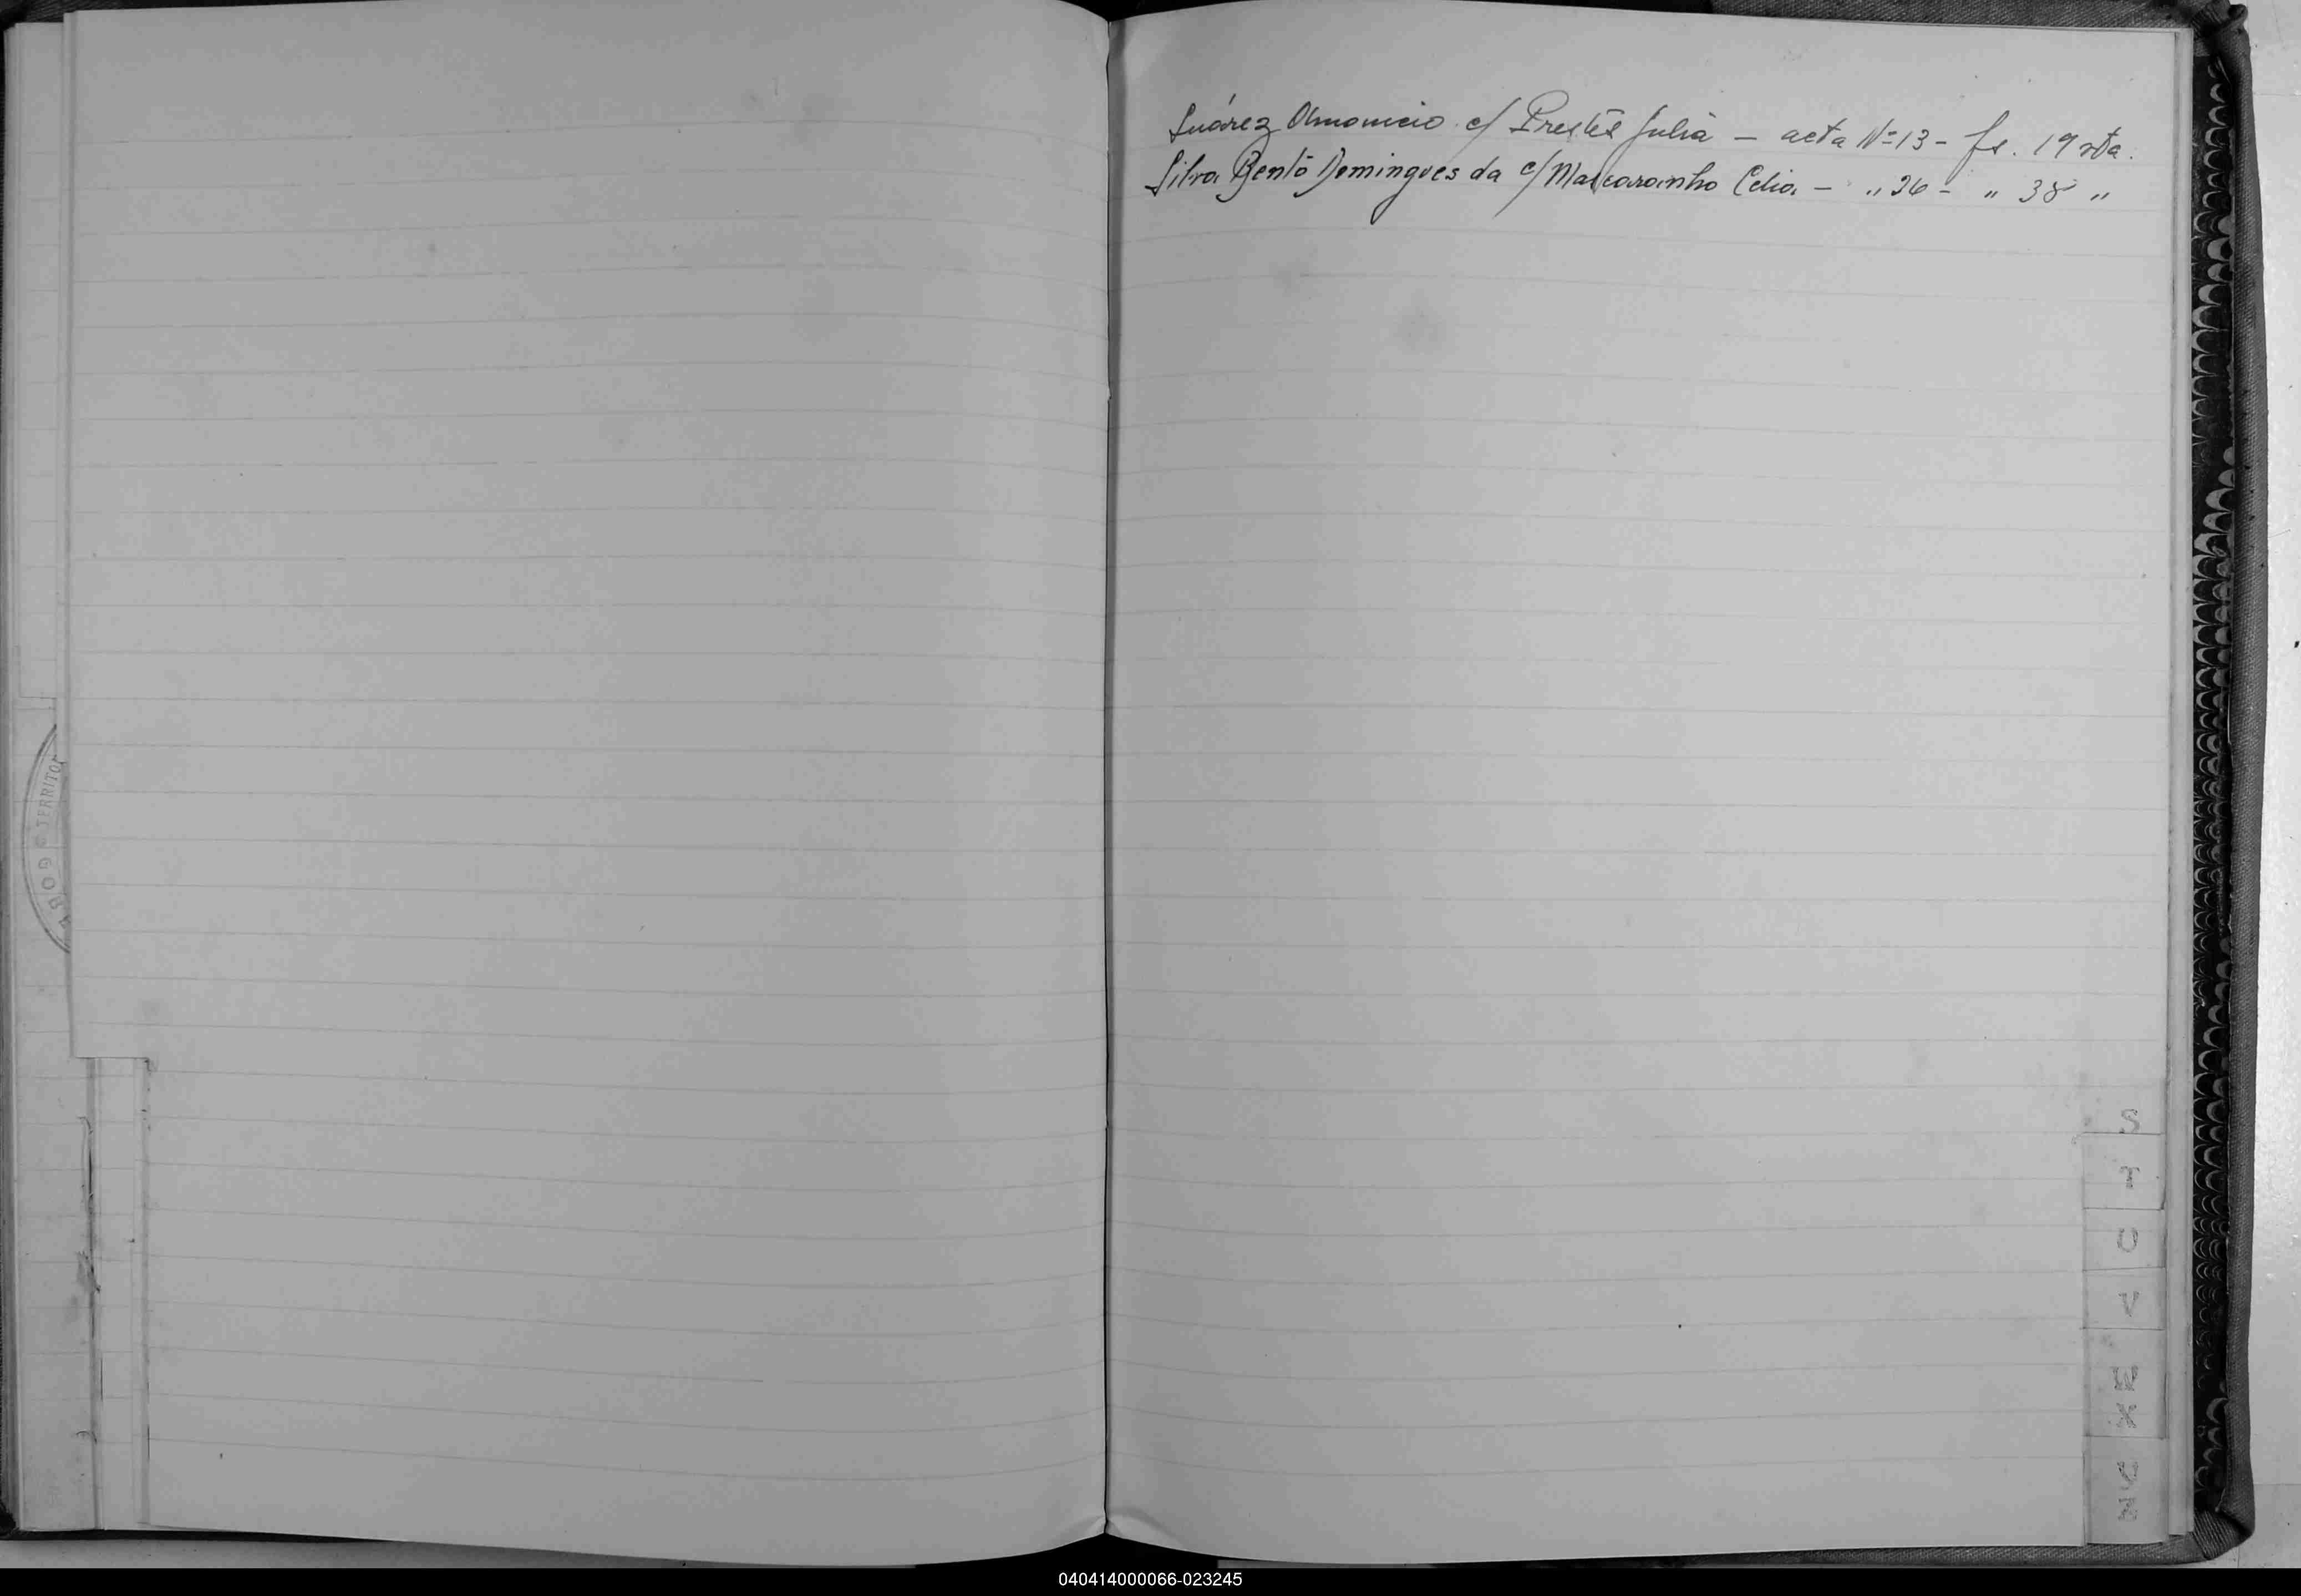 Suárez Amancio c/ Prestes Julia — acta Nº 13 - fs. 19 vta.
Silva Bento Domingues da c/ Mascarainho Celia — „ 26 - „ 38 „
TERRITO
S
T
U
V
X
Z
040414000066-023245